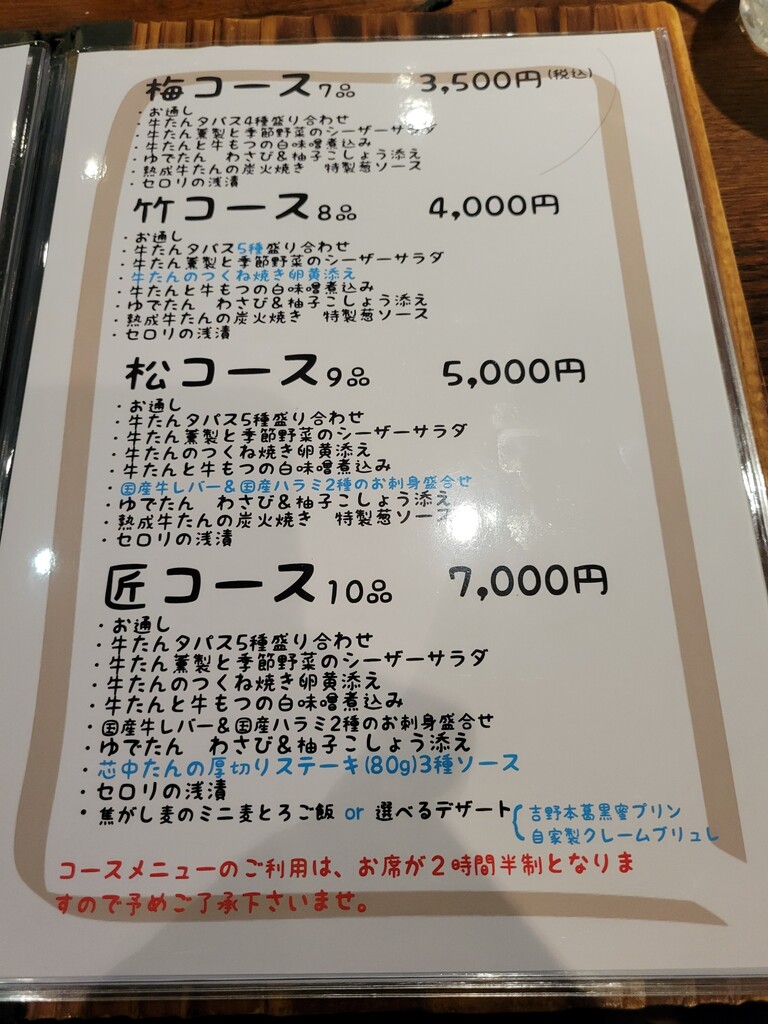 梅コース7品 3,500円(税込)
・お通し
・牛たんタパス4種盛り合わせ
・牛たん薫製と季節野菜のシーザーサラダ
・牛たんと牛もつの白味噌煮込み
・ゆでたん わさび&柚子こしょう添え
・熟成牛たんの炭火焼き 特製葱ソース
・セロリの浅漬
竹コース8品 4,000円
・お通し
・牛たんタパス5種盛り合わせ
・牛たん薫製と季節野菜のシーザーサラダ
・牛たんのつくね焼き卵黄添え
・牛たんと牛もつの白味噌煮込み
・ゆでたん わさび&柚子こしょう添え
・熟成牛たんの炭火焼き 特製葱ソース
・セロリの浅漬
松コース9品 5,000円
・お通し
・牛たんタパス5種盛り合わせ
・牛たん薫製と季節野菜のシーザーサラダ
・牛たんのつくね焼き卵黄添え
・牛たんと牛もつの白味噌煮込み
・国産牛レバー&国産ハラミ2種のお刺身盛合せ
・ゆでたん わさび&柚子こしょう添え
・熟成牛たんの炭火焼き 特製葱ソース
・セロリの浅漬
匠コース10品 7,000円
・お通し
・牛たんタパス5種盛り合わせ
・牛たん薫製と季節野菜のシーザーサラダ
・牛たんのつくね焼き卵黄添え
・牛たんと牛もつの白味噌煮込み
・国産牛レバー&国産ハラミ2種のお刺身盛合せ
・ゆでたん わさび&柚子こしょう添え
・芯中たんの厚切りステーキ(80g)3種ソース
・セロリの浅漬
・焦がし麦のミニ麦とろご飯 or 選べるデザート{吉野本葛黒蜜プリン
自家製クレームブリュレ
コースメニューのご利用は、お席が2時間半制となりま
すので予めご了承下さいませ。